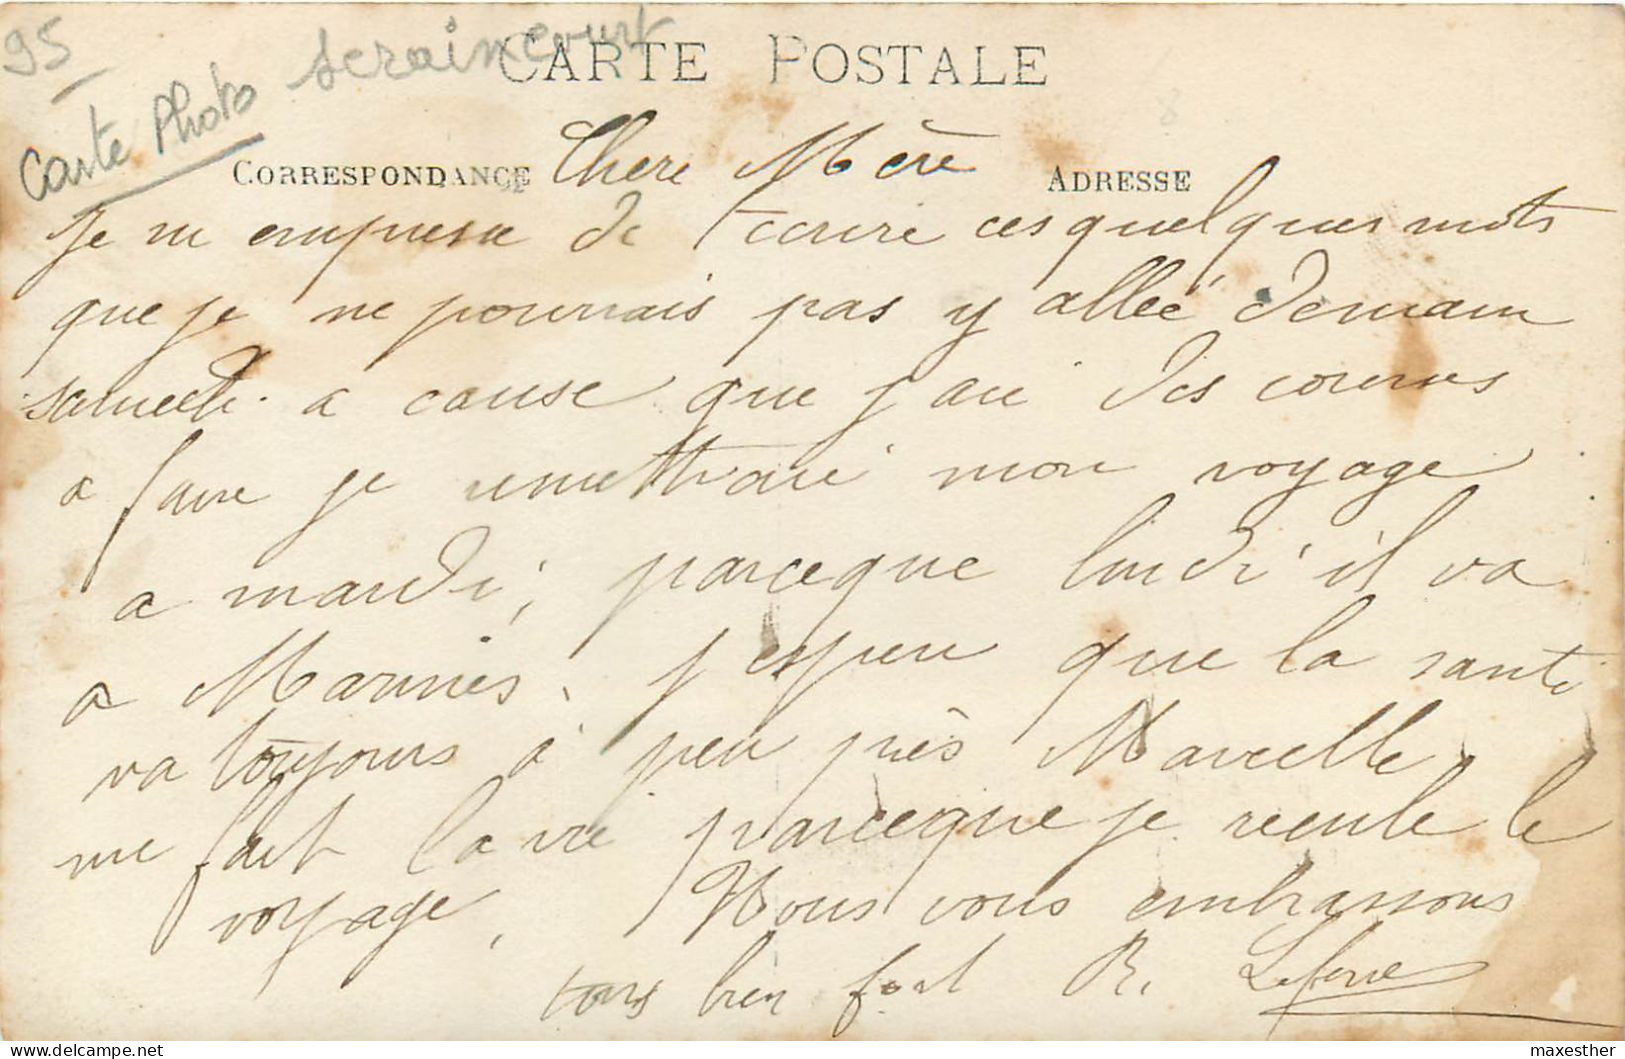 95
Carte Photo Seraincourt
CARTE POSTALE
CORRESPONDANCE Chere Mère ADRESSE
Je m empresse de t ecrire ces quelques mots
que je ne pourrais pas y allée demain
samedi a cause que j ai des courses
a faire je remettrai mon voyage
a mardi, parceque lundi il va
a Marines. j espere que la santé
va toujours à peu près Marcelle
me fait la vie parceque je recule le
voyage, Nous vous embrassons
tous bien fort R.
maxesther